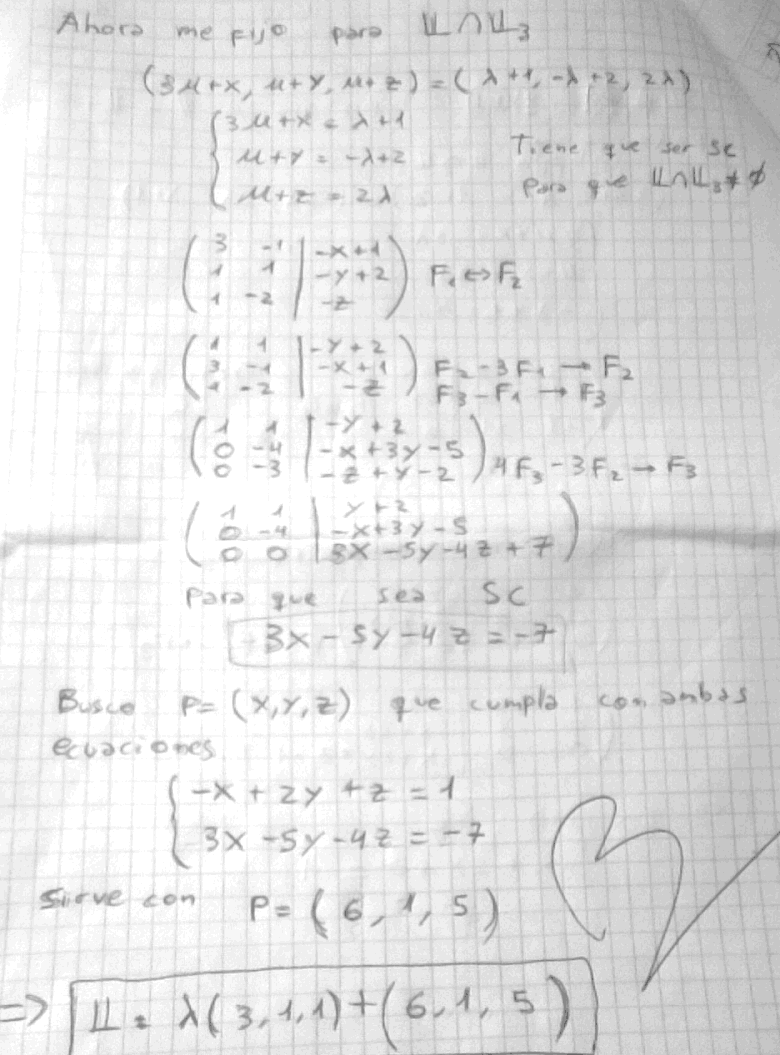 Ahora me fijo para 𝕃∩𝕃₃
(3μ+x, μ+y, μ+z) = (λ+1, -λ+2, 2λ)
{ 3μ+x = λ+1
μ+y = -λ+2
μ+z = 2λ
Tiene que ser SC
para que 𝕃∩𝕃₃ ≠ ∅
( 3 -1 | -x+1
1 1 | -y+2
1 -2 | -z ) F₁ ⇔ F₂
( 1 1 | -y+2
3 -1 | -x+1
1 -2 | -z ) F₂-3F₁ → F₂
F₃-F₁ → F₃
( 1 1 | -y+2
0 -4 | -x+3y-5
0 -3 | -z+y-2 ) 4F₃-3F₂ → F₃
( 1 1 | y+2
0 -4 | -x+3y-5
0 0 | 3x-5y-4z+7 )
para que sea SC
3x-5y-4z=-7
Busco P=(x,y,z) que cumpla con ambas
ecuaciones
{ -x+2y+z=1
3x-5y-4z=-7
Sirve con P=(6,1,5)
=> 𝕃 = λ(3,1,1)+(6,1,5)